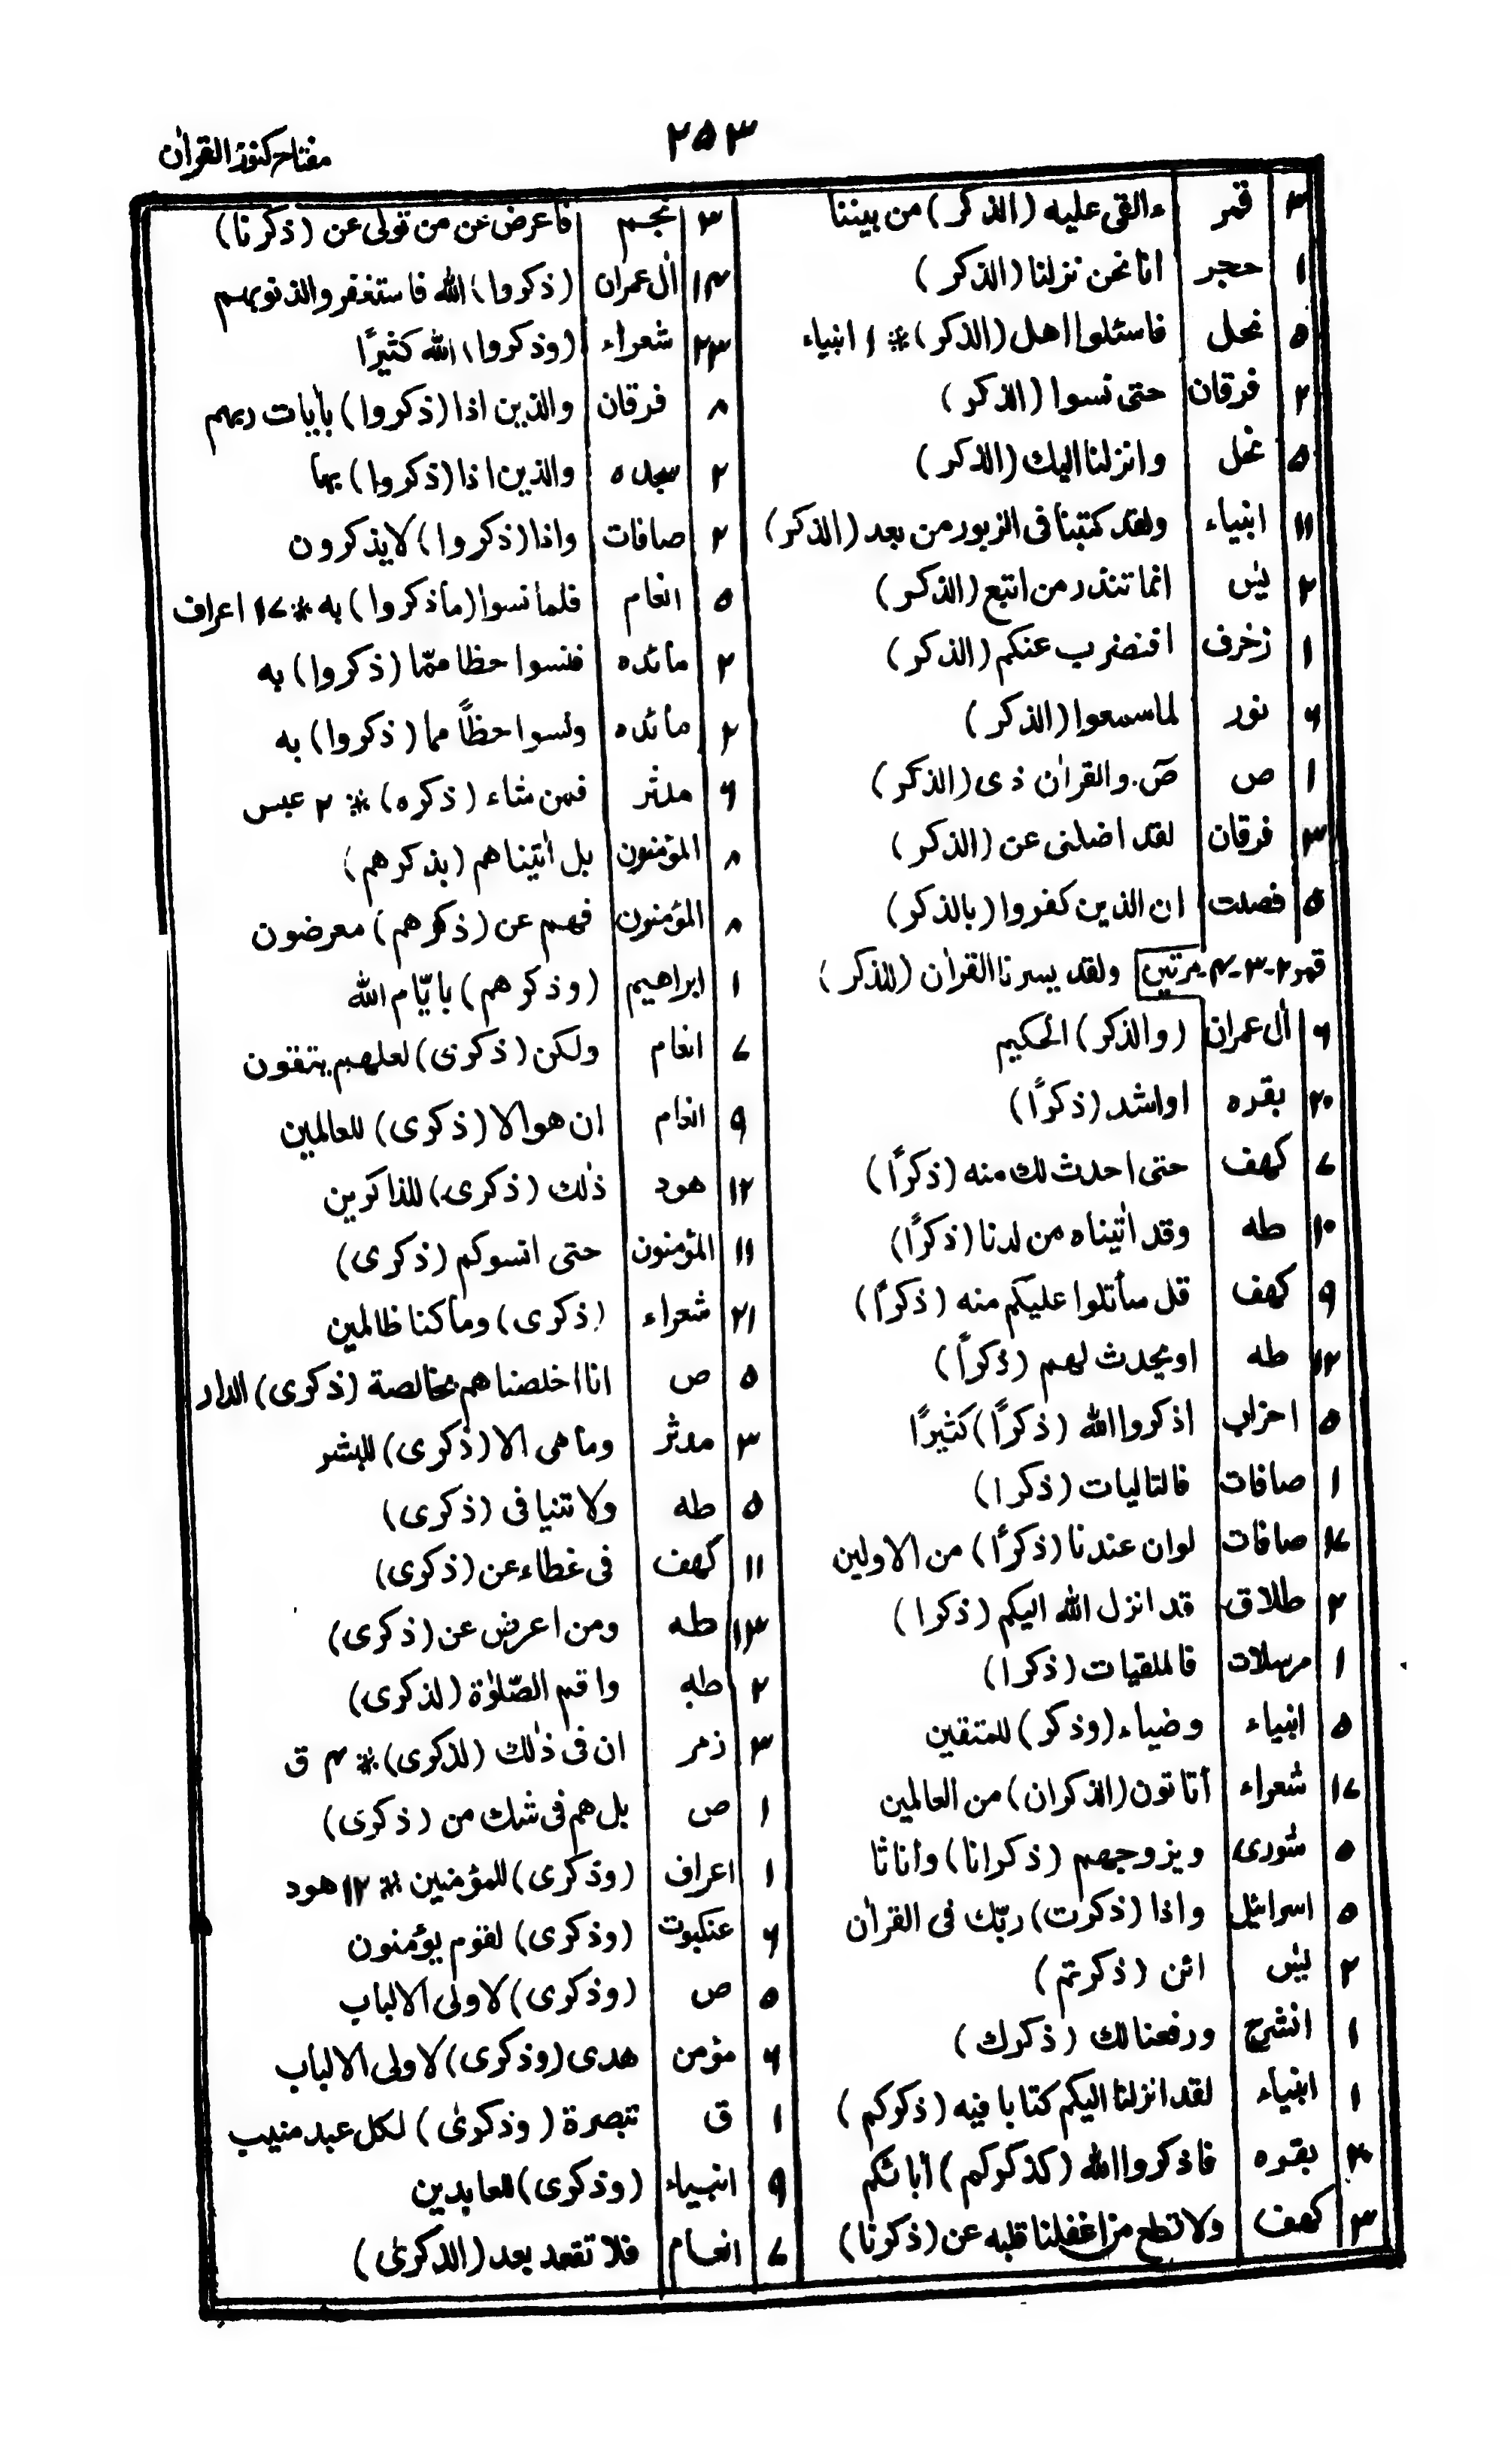 ۲۵۳
مفتاح کنوز القراٰن
۳ قمر ءالقی علیه (الذکر) من بیننا
۱ حجر انا نحن نزلنا (الذکر)
۵ نحل فاسئلوا اهل (الذکر) * ۱ انبیاء
۲ فرقان حتی نسوا (الذکر)
۵ نحل وانزلنا الیك (الذکر)
۱۱ انبیاء ولقد کتبنا فی الزبور من بعد (الذکر)
۲ یٰس انما تنذر من اتبع (الذکر)
۱ زخرف افنضرب عنکم (الذکر)
۶ نور لما سمعوا (الذکر)
۱ ص صٓ. والقراٰن ذی (الذکر)
۳ فرقان لقد اضلنی عن (الذکر)
۵ فصلت ان الذین کفروا (بالذکر)
قمر ۲-۳-۴ مرتین ولقد یسرنا القراٰن (للذکر)
۶ اٰل عمران (والذکر) الحکیم
۲۰ بقره او اشد (ذکرًا)
۷ کهف حتی احدث لك منه (ذکرًا)
۱۰ طه وقد اٰتیناه من لدنا (ذکرًا)
۹ کهف قل سأتلوا علیکم منه (ذکرًا)
۱۲ طه او یحدث لهم (ذکرًا)
۵ احزاب اذکروا الله (ذکرًا) کثیرًا
۱ صافات فالتالیات (ذکرا)
۱۷ صافات لو ان عندنا (ذکرًا) من الاولین
۲ طلاق قد انزل الله الیکم (ذکرا)
۱ مرسلات فالملقیات (ذکرا)
۵ انبیاء وضیاء (وذکر) للمتقین
۱۷ شعراء أتاتون (الذکران) من العالمین
۵ شوری ویزوجهم (ذکرانا) وأناثا
۵ اسرائیل واذا (ذکرت) ربّك فی القراٰن
۲ یٰس ائن (ذکرتم)
۱ انشرح ورفعنا لك (ذکرك)
۱ انبیاء لقد انزلنا الیکم کتابا فیه (ذکرکم)
۲۰ بقره فاذکروا الله (کذکرکم) أبائکم
۳ کهف ولا تطع من اغفلنا قلبه عن (ذکرنا)
۳ نجم فاعرض عن من تولی عن (ذکرنا)
۱۴ اٰل عمران (ذکروا) الله فاستغفروا لذنوبهم
۲۳ شعراء (وذکروا) الله کثیرًا
۸ فرقان والذین اذا (ذکروا) بأیات ربهم
۲ سجده والذین اذا (ذکروا) بها
۲ صافات واذا (ذکروا) لا یذکرون
۵ انعام فلما نسوا (ما ذکروا) به * ۱۷ اعراف
۲ مائده فنسوا حظا ممّا (ذکروا) به
۲ مائده ونسوا حظاً مما (ذکروا) به
۶ مدثر فمن شاء (ذکره) * ۲ عبس
۸ المؤمنون بل اٰتیناهم (بذکرهم)
۸ المؤمنون فهم عن (ذکرهم) معرضون
۱ ابراهیم (وذکرهم) بایّام الله
۷ انعام ولکن (ذکری) لعلهم یتقون
۹ انعام ان هو الا (ذکری) للعالمین
۱۲ هود ذٰلك (ذکری) للذاکرین
۱۱ المؤمنون حتی انسوکم (ذکری)
۲۱ شعراء (ذکری) وما کنا ظالمین
۵ ص انا اخلصناهم بخالصة (ذکری) الدار
۳ مدثر وما هی الا (ذکری) للبشر
۵ طه ولا تنیا فی (ذکری)
۱۱ کهف فی غطاء عن (ذکری)
۱۳ طه ومن اعرض عن (ذکری)
۲ طه واقم الصّلوٰة (لذکری)
۳ زمر ان فی ذٰلك (لذکری) * ۴ ق
۱ ص بل هم فی شك من (ذکری)
۱ اعراف (وذکری) للمؤمنین * ۱۲ هود
۶ عنکبوت (وذکری) لقوم یؤمنون
۵ ص (وذکری) لاولی الالباب
۶ مؤمن هدی (وذکری) لاولی الالباب
۱ ق تبصرة (وذکرٰی) لکل عبد منیب
۹ انبیاء (وذکری) للعابدین
۷ انعام فلا تقعد بعد (الذکرٰی)